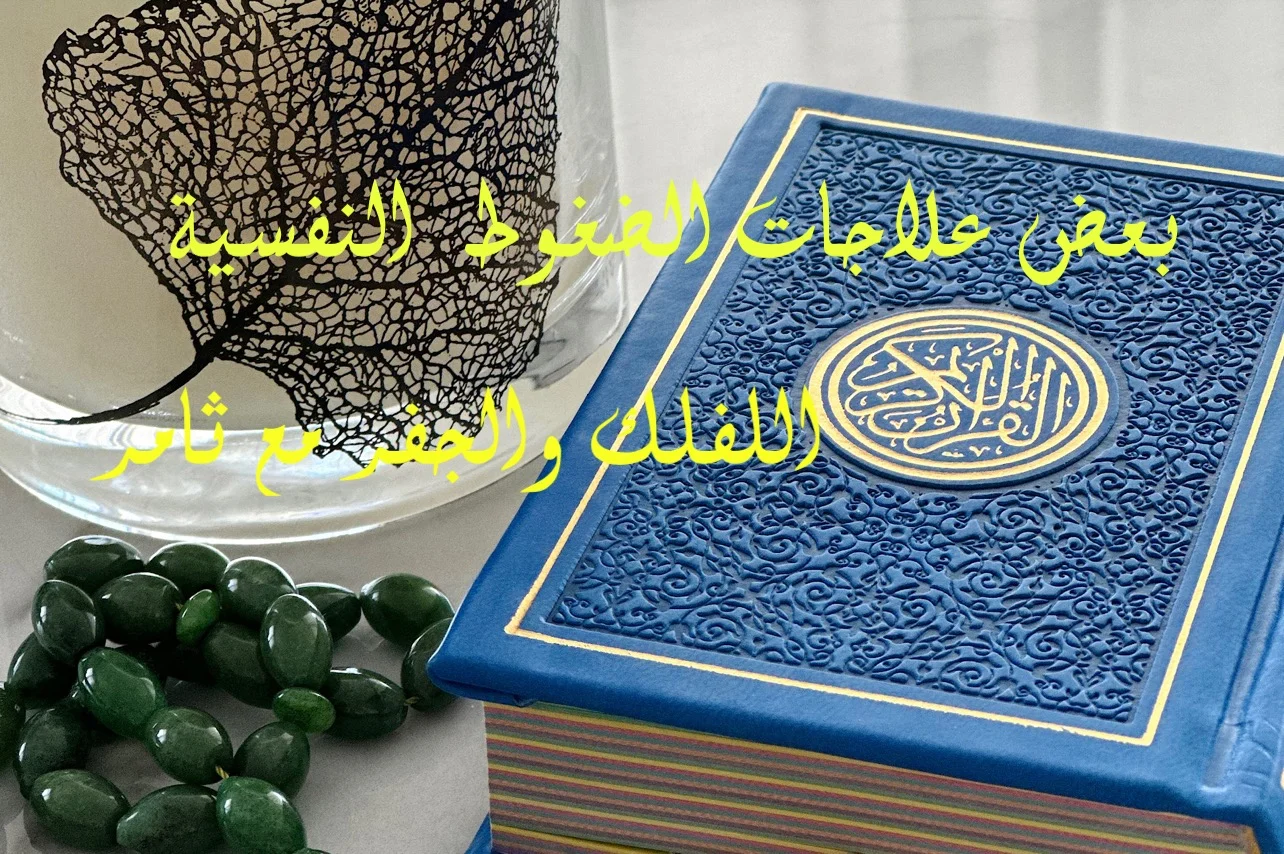 بعض علاجات الضغوط النفسية
اللفلك والجفر مع ثامر
القرآن الكريم